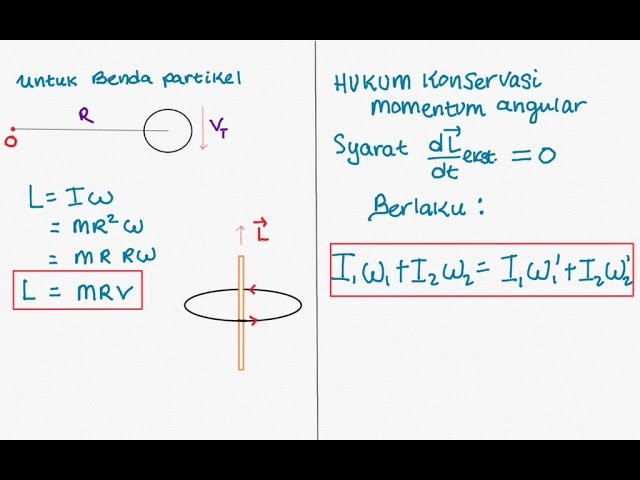 untuk Benda partikel
R
O
V_T
L = Iω
= mR²ω
= m R Rω
L = mRv
L⃗
HUKUM Konservasi
momentum angular
Syarat dL⃗/dt ekst. = 0
Berlaku :
I₁ω₁ + I₂ω₂ = I₁ω₁' + I₂ω₂'